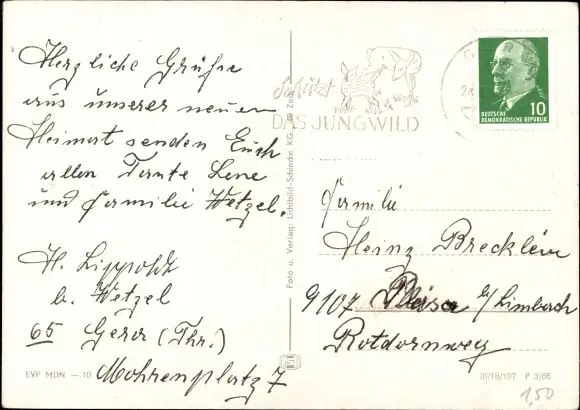 Herzliche Grüße
aus unserer neuen
Heimat senden Euch
allen Tante Lene
und Familie Wetzel.
H. Lippoldt
b. Wetzel
65 Gera (Thr.)
Mohrenplatz 7
EVP MDN —.10
Foto u. Verlag: Lichtbild-Schincke KG.
Schützt
DAS JUNGWILD
10
DEUTSCHE
DEMOKRATISCHE REPUBLIK
Familie
Heinz Brecklein
9107 Pleisa b/Limbach
Rotdornweg
III/18/197 P 3/66
1,50